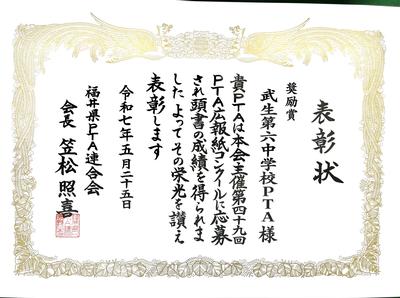 表彰状
奨励賞
武生第六中学校PTA様
貴PTAは本会主催第四十九回
PTA広報紙コンクールに応募
され頭書の成績を得られま
した よってその栄光を讃え
表彰します
令和七年五月二十五日
福井県PTA連合会
会長 笠松照喜